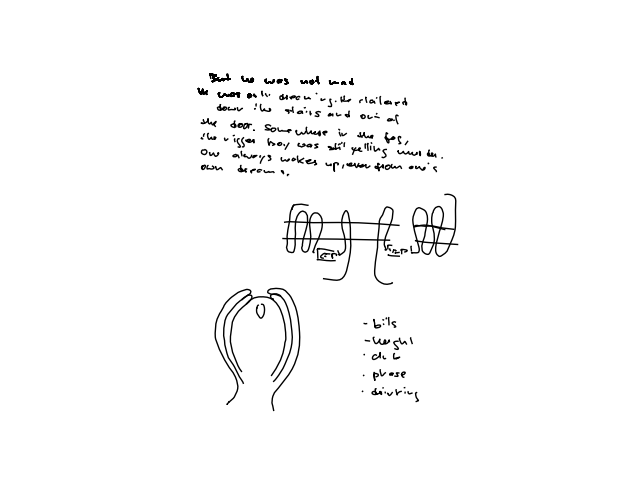 But he was not mad
He was only dreaming. He clattered
down the stairs and out of
the door. Somewhere in the fog,
the nigger boy was still yelling murder.
One always wakes up, even from one's
own dreams.
- bits
- height
· club
· phase
· drinking